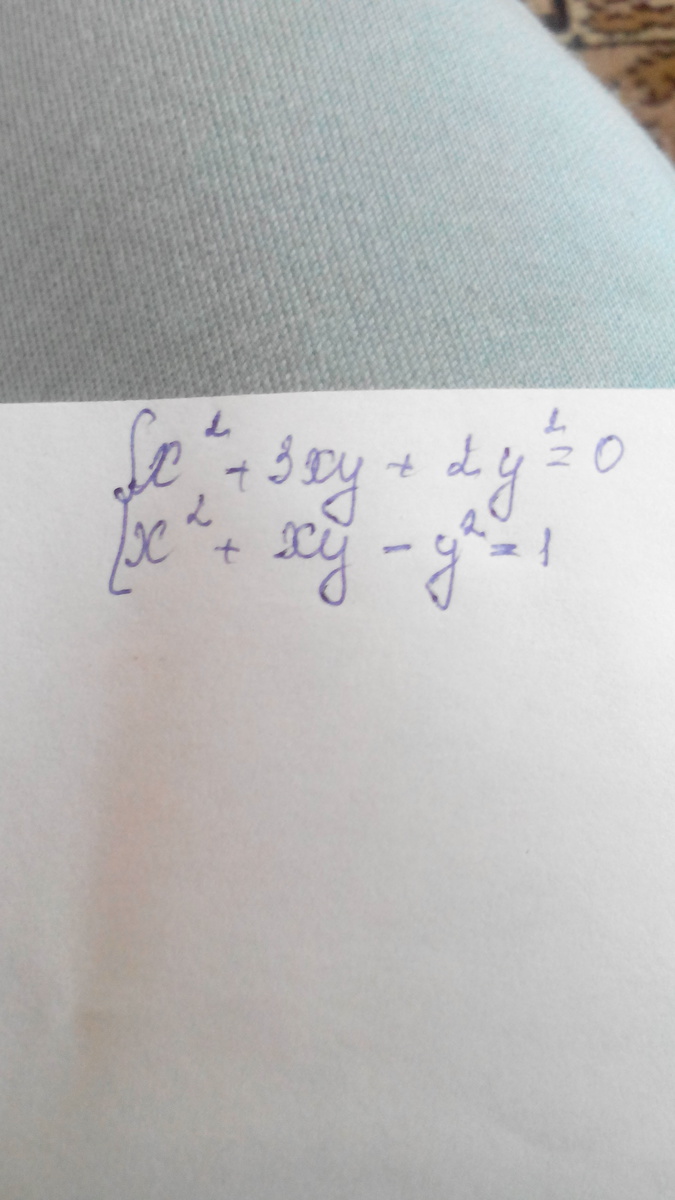 {x² + 3xy + 2y² = 0
{x² + xy - y² = 1